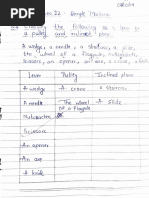 Lesson 22 - Simple Machine
the following as a lever or
a pulley and inclined plane.
A wedge, a needle, a staircase, a slide,
the wheel of a flagpole, nutcracker,
scissors, an opener, an axe, a crane, a knife
Lever
Pulley
Inclined plane
A wedge
A crane
A staircase
A needle
The wheel
of a flagpole
A slide
Nutcracker
Scissors
An opener
An axe
A knife